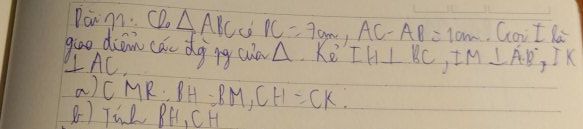 Bài 7: Cho △ ABC có BC = 7cm, AC - AB = 1cm. Gọi I là
giao điểm các đg pg của △. Kẻ IH ⊥ BC, IM ⊥ AB, IK
⊥ AC.
a) CMR: BH = BM, CH = CK.
b) Tính BH, CH